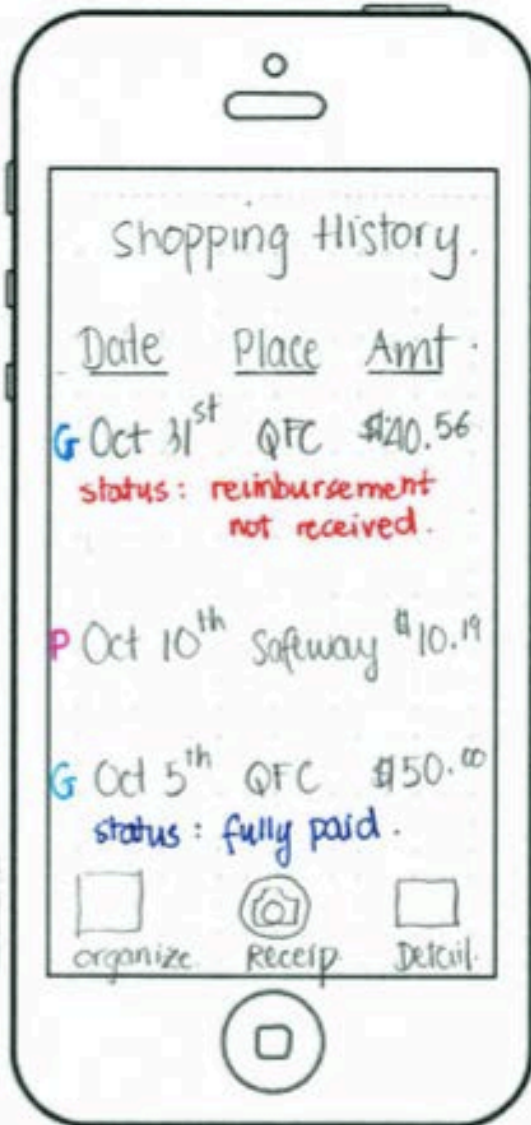 Shopping History.
Date Place Amt.
G Oct 31st QFC $20.56
status: reimbursement
not received.
P Oct 10th Safeway $10.19
G Oct 5th QFC $50.00
status: fully paid.
organize. Receip. Detail.